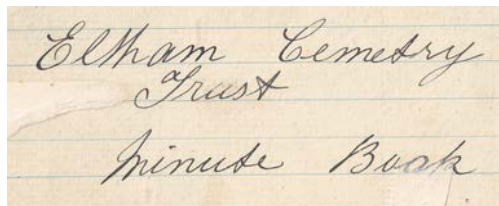 Eltham Cemetry
Trust
Minute Book